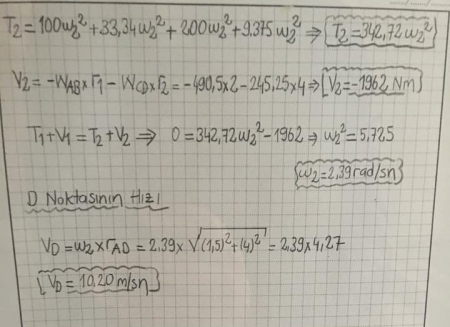 T₂ = 100ω₂² + 33,34ω₂² + 200ω₂² + 9.375ω₂² ⇒ T₂ = 342,72ω₂²
V₂ = -W_AB x r₁ - W_CD x r₂ = -490,5x2 - 245,25x4 ⇒ V₂ = -1962 Nm
T₁ + V₁ = T₂ + V₂ ⇒ 0 = 342,72ω₂² - 1962 ⇒ ω₂² = 5,725
ω₂ = 2,39 rad/sn
D Noktasının Hızı
V_D = ω₂ x r_AD = 2,39 x √(1,5)² + (4)² = 2,39 x 4,27
V_D = 10,20 m/sn